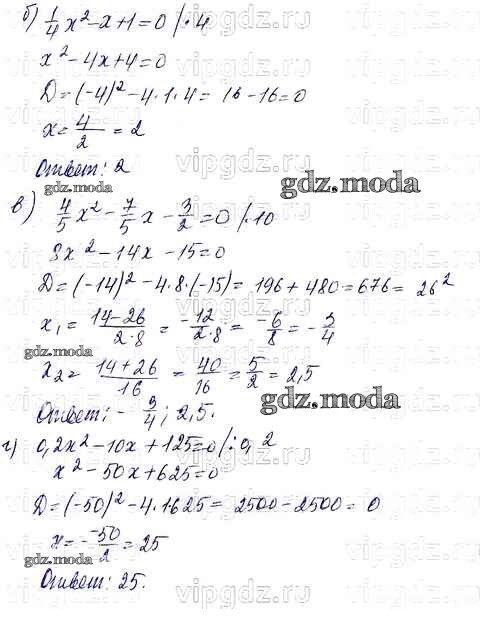 б) 1/4 x² - x + 1 = 0 /· 4
x² - 4x + 4 = 0
D = (-4)² - 4·1·4 = 16 - 16 = 0
x = 4/2 = 2
Ответ: 2
gdz.moda
gdz.moda
в) 4/5 x² - 7/5 x - 3/2 = 0 /· 10
8x² - 14x - 15 = 0
D = (-14)² - 4·8·(-15) = 196 + 480 = 676 = 26²
x₁ = (14-26)/(2·8) = -12/(2·8) = -6/8 = -3/4
gdz.moda
x₂ = (14+26)/16 = 40/16 = 5/2 = 2,5
Ответ: -3/4; 2,5.
gdz.moda
г) 0,2x² - 10x + 125 = 0 /: 0,2
x² - 50x + 625 = 0
D = (-50)² - 4·1625 = 2500 - 2500 = 0
x = - -50/2 = 25
gdz.moda
Ответ: 25.
vipgdz.ru